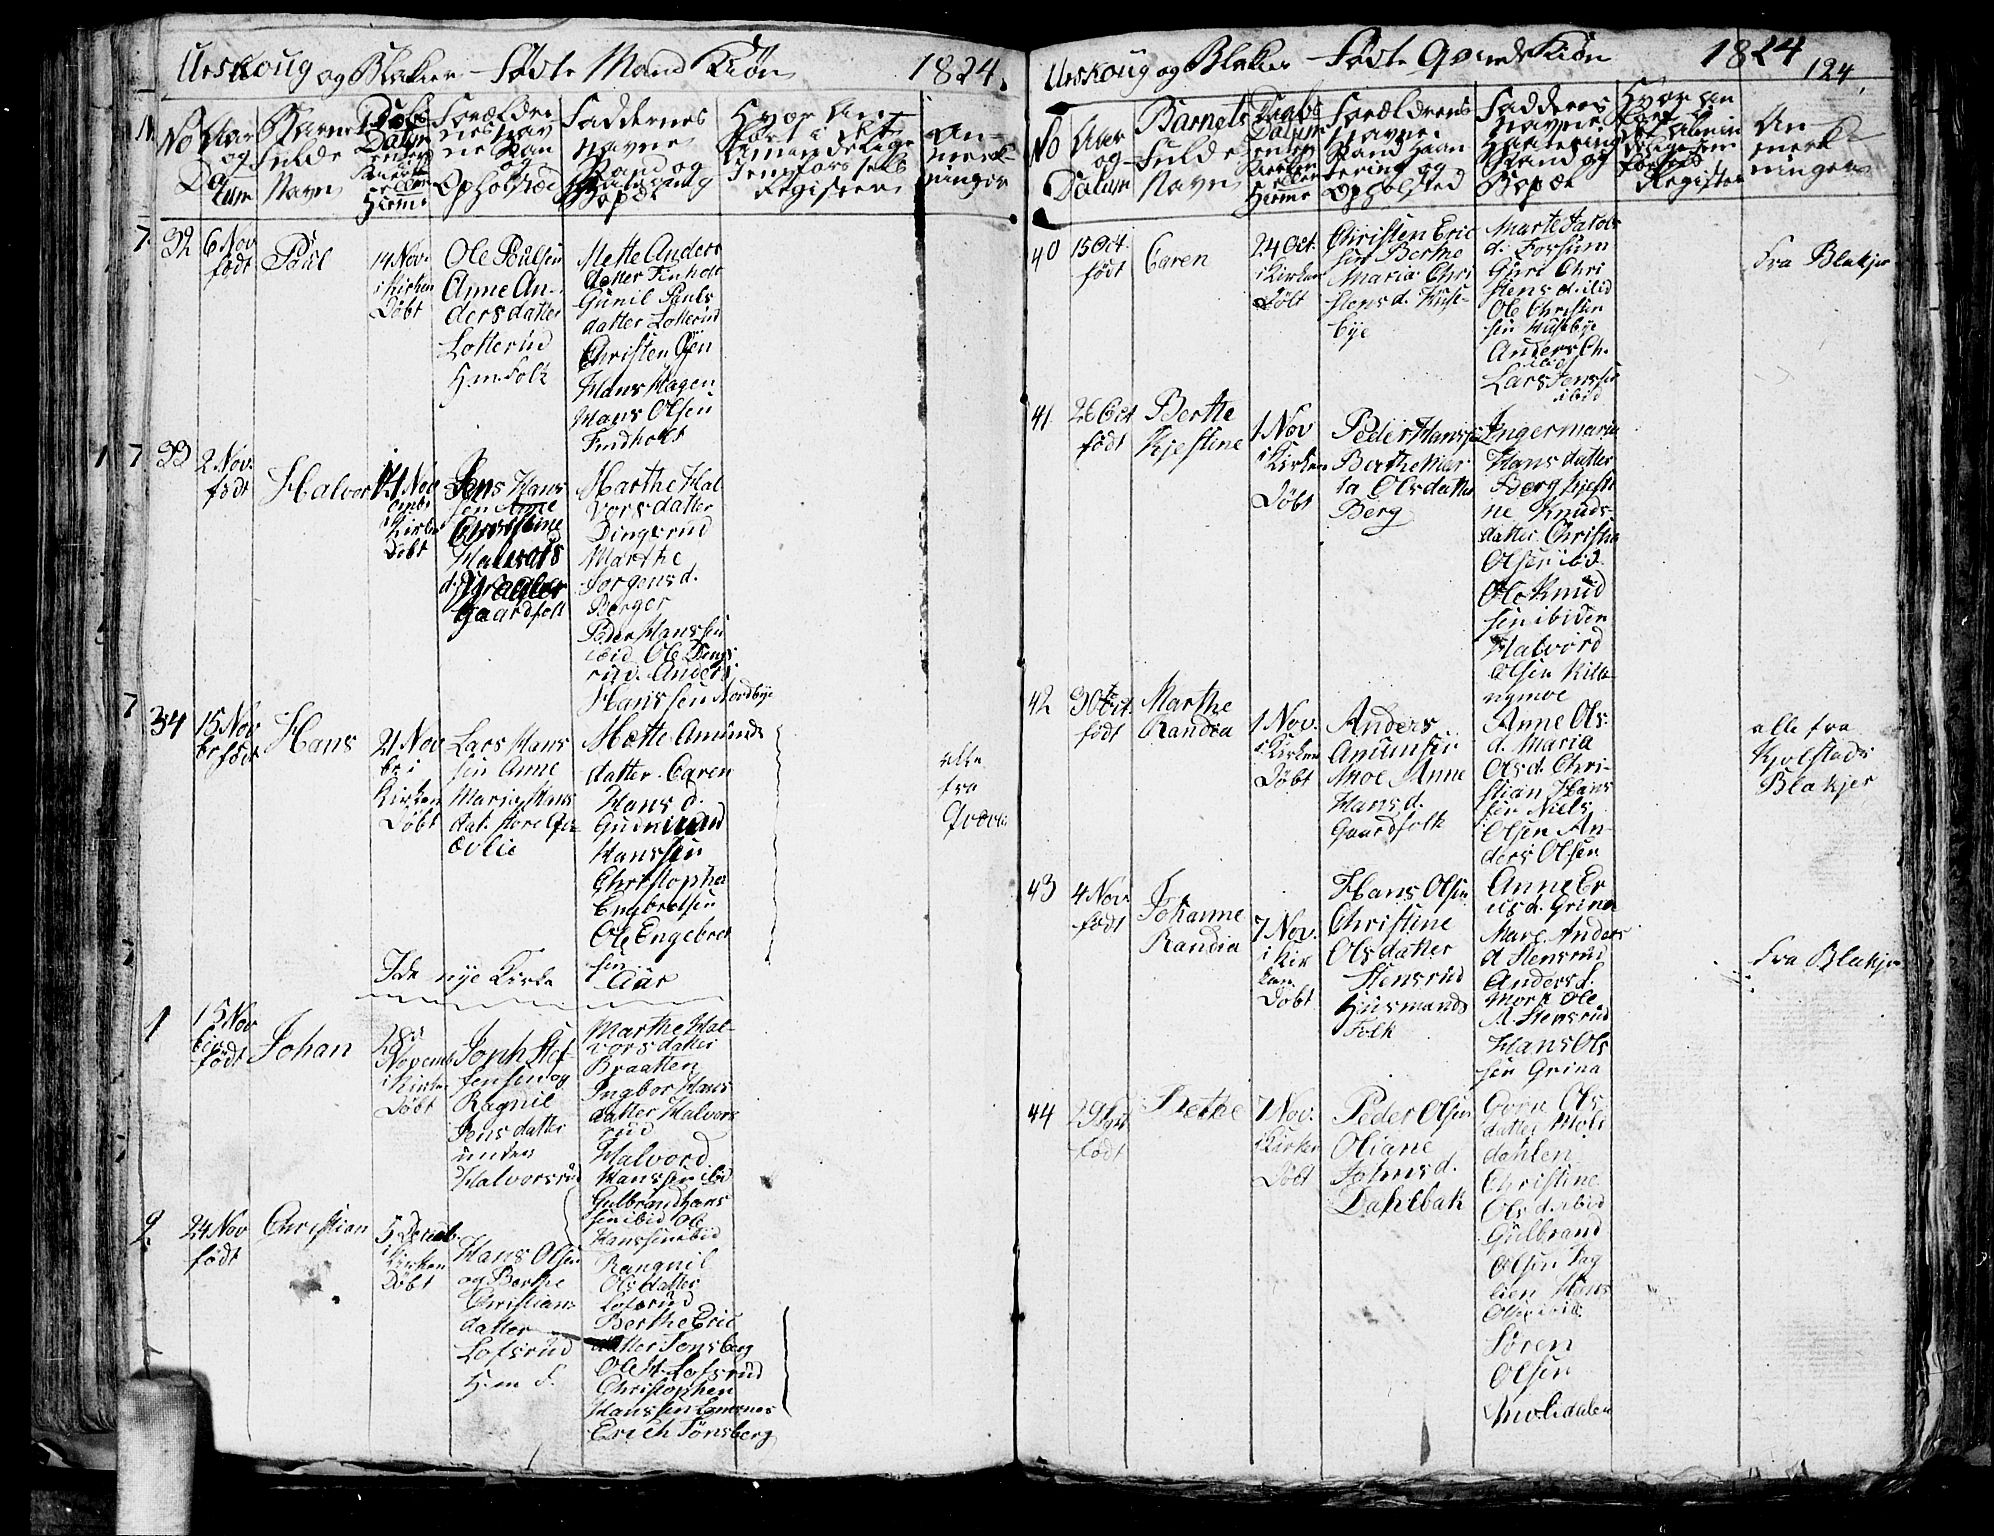 Urskoug og Blakier Fødte Mand Kiøn 1824.
No
Aar
og
Datum
Barnets
fulde
Navn
Daabs
Datum
Forældre
nes Nav
ne
og
Opholdsted
Faddernes
Navne
Stand og
Hvor An
ført i det
Register
An-
merk-
ninger
7.
32
6 Nov
født
Paul
14 Nov.
i Kirken
Døbt
Ole Poulsen
Anne An-
dersdatter
Lotterud
H.m. Folk
Mette Anders
datter Finholt
Gunil Pouls
datter Lotterud
Christen
Hans Hagen
Hans Olsen
Findholt
1 7
33
2 Nov.
født
Halvor
14 Nov
i
Kirken
Døbt
Jens Hans
sen Anne
Christine
Halvors
d.
Gaardfolk
Marthe Hal
vorsdatter
Dingsrud
Marthe
Jorgensd.
Berger
Peder Hanssen
ibid Ole Dings
rud. Anders
Hanssen Nordbye
7
34
15 Nov
br født
Hans
21 Nov
br i
Kirken
Døbt
Lars Hans
sen Anne
Maria Hans
dat. store
Mette Amunds
datter. Caren
Hans d.
Gudmund
Hanssen
Christopher
Engebretsen
Ole Engebret
sen
alle
fra
I de nye Kirke Aar
1
15 Nov
ber
født
Johan
28de
Novemb
i Kirken
Døbt
Joph Stef-
fensen og
Ragnil
Jens datter
under
Halvorsrud
Marthe Hal-
vorsdatter
Braatten
Ingbor Hans
datter Halvors
rud
Halvord
Hanssen ibid
Gulbrand Hans
sen ibid Ole
Hanssen ibid
2.
24 Nov
født
Christian
5 Decemb.
i
Kirken
Døbt
Hans Olsen
og Berthe
Christians
datter
Lofsrud
H.m F.
Rangnil
Olsdatter
Lofsrud
Berthe Eric
datter Tonsberg
Ole H. Lofsrud
Christopher
Hanssen
Erich Tønsberg
Urskoug og Blakier Fødte Qvinde Kiøn 1824
124.
No
Aar
og
Datum
Barnets
fulde
Navn
Daabs
Datum
Forældrenes
Navne
Stand Haan
tering og
Opholdsted
Faddernes
Navne
Haantering
Stand og
Bopæl
Hvor an
ført
det almin
delige Jevn
førsels
Register
An-
merk-
ninger
40
15 Oct.
født
Caren
24 Oct.
i Kirken
Døbt
Christen Eric
sen Berthe
Maria Chri
stens d. Huse-
bye
Marte Jacobs
d. Forsum
Guri Chri
stens d. ibid
Ole Christen
sen Husebye
Anders Ch.
ibid
Lars Jenssen
ibid
fra Blakjer
41
26 Oct
født
Berthe
Kjestine
1 Nov
i Kirken
Døbt
Peder Hanssen
Berthe Mar
ia Olsdatter
Berg
Inger maria
Hans datter
Berg Kjesti
ne Knuds-
datter Christian
Olsen ibid
Ole Knud
sen ibiden
Halvord
Olsen Kille
nymoe
42
30te Oct.
født
Marthe
Randia
1 Nov.
i Kirken
Døbt
Anders
Amunsen
Moe Anne
Hans d.
Gaardfolk
Anne Ols.
d. Maria
Olsd. Chri-
stian Hans
sen Niels
Olsen An-
ders Olsen
alle fra
Kjølstads
Blakjer
43
4 Nov.
født
Johanne
Randia
7 Nov.
i Kir
ken
Døbt
Hans Olsen
Christine
Olsdatter
Stensrud
Huusmands
Folk
Anne Er
icsd. Grina
Mare Anders
d Stensrud
Anders d.
Mork Ole
A. Stensrud
Hans Ols
sen Grina
fra Blakjer
44
29
født
Grethe
7 Nov.
i Kirken
Døbt
Peder Olsen
Oliane
Johns d.
Dahlbak
Gorn Ols
datter Moli
dahlen
Christine
Ols d. ibid
Gulbrand
Olsen Fag
lien Hans
Olsen ibid
Søren
Olsen
Molidalen